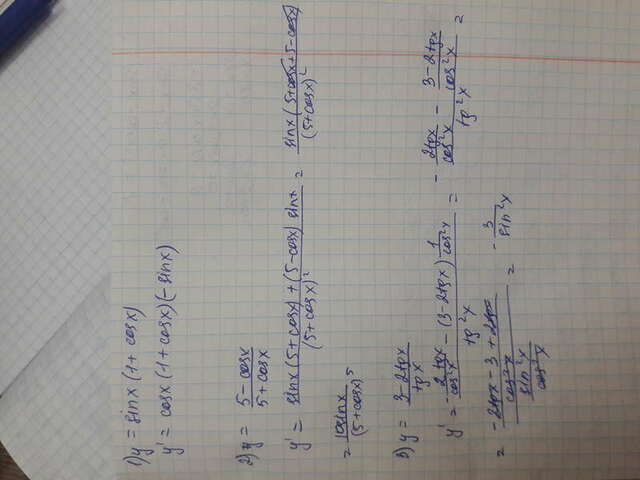 1) y = sinx (1 + cosx)
y' = cosx (1 + cosx)(-sinx)
2) y = (5 - cosx)/(5 + cosx)
y' = (sinx (5 + cosx) + (5 - cosx) sinx)/(5 + cosx)² = (sinx (5 + cosx + 5 - cosx))/(5 + cosx)²
= 10sinx/(5 + cosx)⁵
3) y = (3 - 2tgx)/tgx
y' = (-2tgx/cos²x - (3 - 2tgx) 1/cos²x)/tg²x = (-2tgx/cos²x - (3 - 2tgx)/cos²x)/tg²x =
= ((-2tgx - 3 + 2tgx)/cos²x)/(sin²x/cos²x) = -3/sin²x